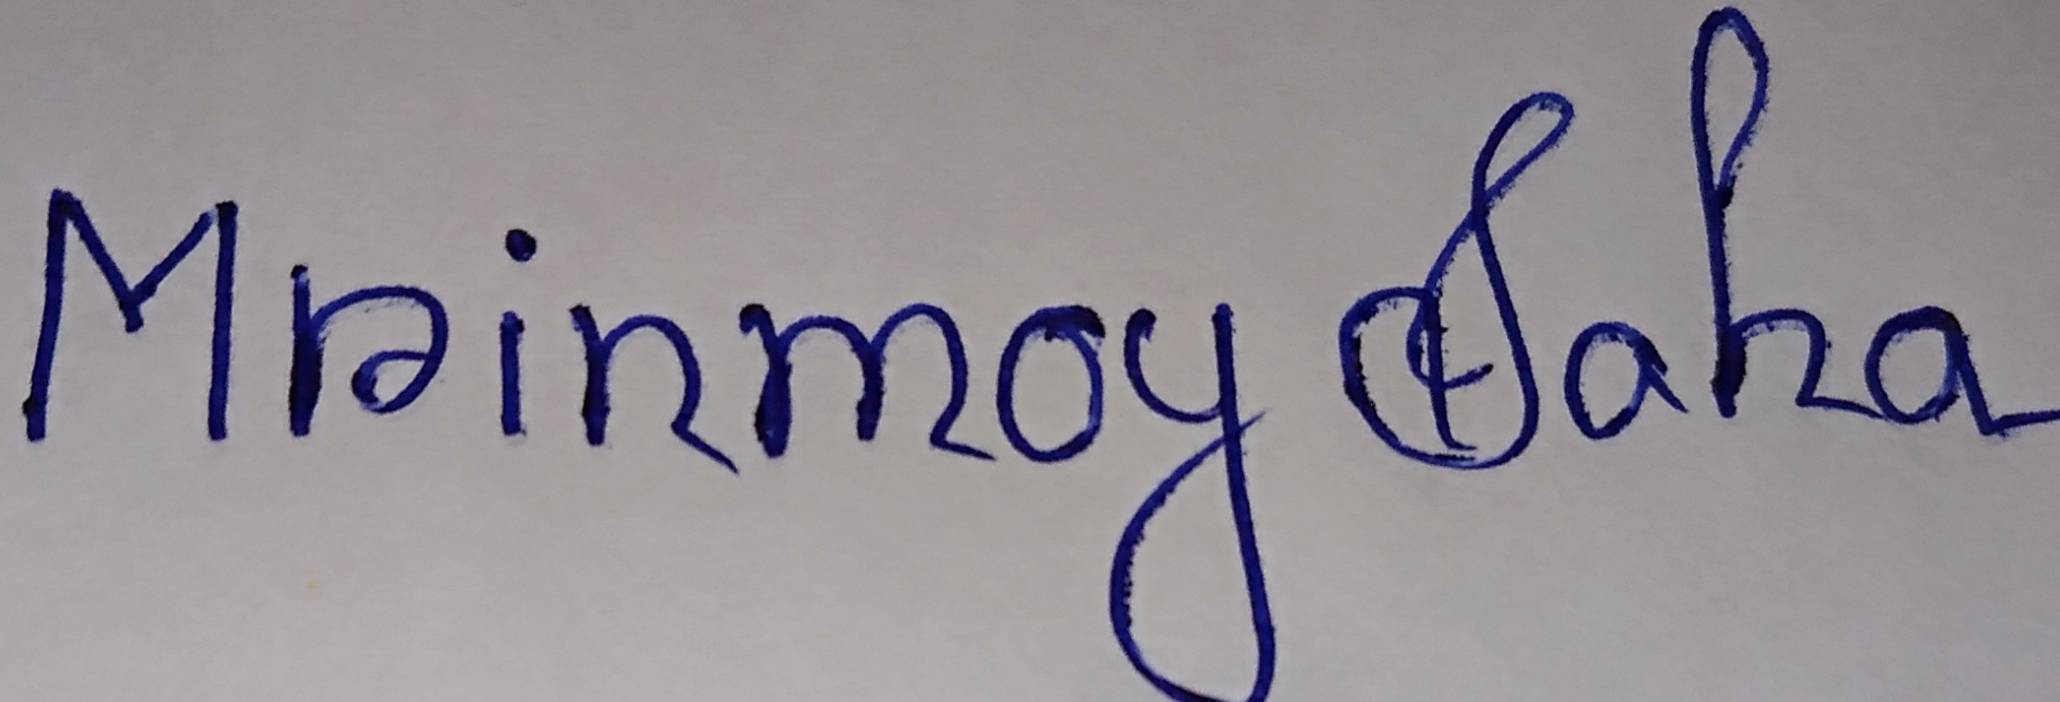 Mrinmoy Saha